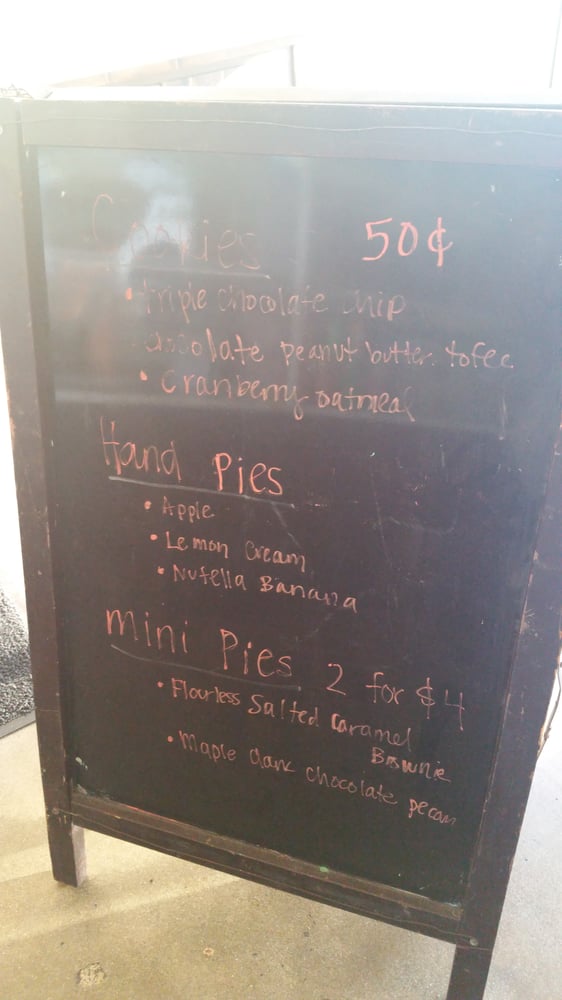 Cookies 50¢
• triple chocolate chip
chocolate peanut butter tofee
• Cranberry oatmeal
Hand Pies
• Apple
• Lemon Cream
• Nutella Banana
mini Pies 2 for $4
• Flourless Salted Caramel
Brownie
• Maple dark chocolate pecan